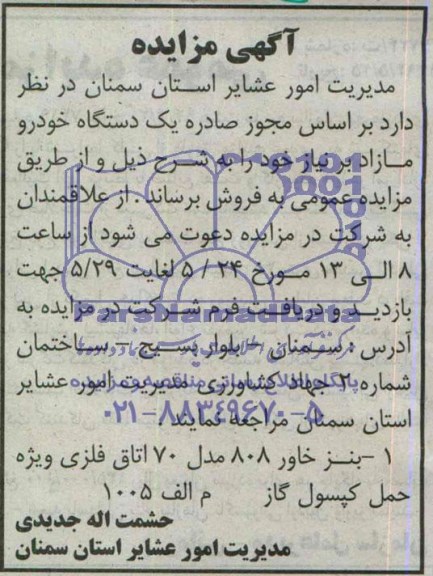 آگهی مزایده
مدیریت امور عشایر استان سمنان در نظر
دارد بر اساس مجوز صادره یک دستگاه خودرو
مازاد بر نیاز خود را به شرح ذیل و از طریق
مزایده عمومی به فروش برساند . از علاقمندان
به شرکت در مزایده دعوت می شود از ساعت
۸ الی ۱۳ مورخ ۲۴ / ۵ لغایت ۵/۲۹ جهت
بازدید و دریافت فرم شرکت در مزایده به
ParsNamadData
آدرس : سمنان – بلوار بسیج – ساختمان
شماره ۲ جهاد کشاورزی مدیریت امور عشایر
پایگاه اطلاع رسانی مناقصه و مزایده
استان سمنان مراجعه نمایند .
۰۲۱-۸۸۳۴۹۶۷۰-۵
۱ –بنز خاور ۸۰۸ مدل ۷۰ اتاق فلزی ویژه
حمل کپسول گاز م الف ۱۰۰۵
حشمت اله جدیدی
مدیریت امور عشایر استان سمنان